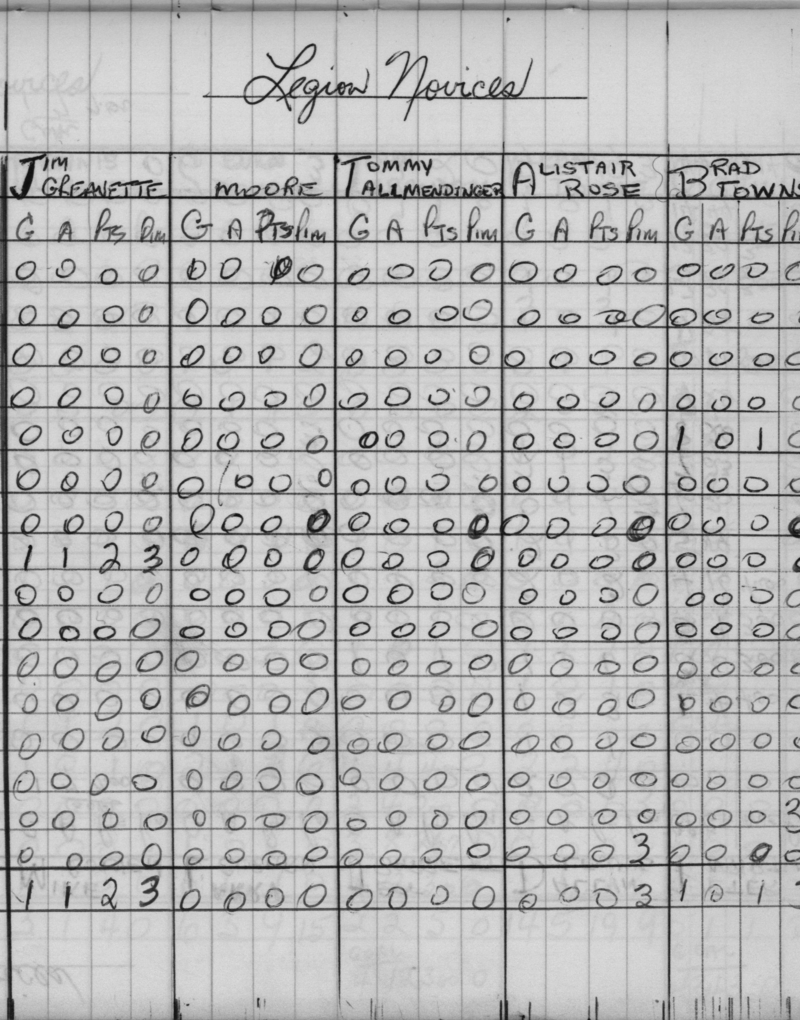 Legion Novices
JIM GREANETTE MOORE TOMMY ALLMENDINGER ALISTAIR ROSE BRAD TOWNS
G A Pts Pim G A Pts Pim G A Pts Pim G A Pts Pim G A Pts Pi
0 0 0 0 0 0 0 0 0 0 0 0 0 0 0 0 0 0 0 0
0 0 0 0 0 0 0 0 0 0 0 0 0 0 0 0 0 0 0
0 0 0 0 0 0 0 0 0 0 0 0 0 0 0 0 0 0 0 0
0 0 0 0 0 0 0 0 0 0 0 0 0 0 0 0 0 0 0 0
0 0 0 0 0 0 0 0 0 0 0 0 0 0 0 0 1 0 1 0
0 0 0 0 0 0 0 0 0 0 0 0 0 0 0 0 0 0 0 0
0 0 0 0 0 0 0 0 0 0 0 0 0 0 0 0 0 0 0
1 1 2 3 0 0 0 0 0 0 0 0 0 0 0 0 0 0 0
0 0 0 0 0 0 0 0 0 0 0 0 0 0 0 0 0 0 0 0
0 0 0 0 0 0 0 0 0 0 0 0 0 0 0 0 0 0 0 0
0 0 0 0 0 0 0 0 0 0 0 0 0 0 0 0 0 0 0 0
0 0 0 0 0 0 0 0 0 0 0 0 0 0 0 0 0 0 0 0
0 0 0 0 0 0 0 0 0 0 0 0 0 0 0 0 0 0 0 0
0 0 0 0 0 0 0 0 0 0 0 0 0 0 0 0 0 0 0 0
0 0 0 0 0 0 0 0 0 0 0 0 0 0 0 0 0 0 0 3
0 0 0 0 0 0 0 0 0 0 0 0 0 0 0 3 0 0 0 0
1 1 2 3 0 0 0 0 0 0 0 0 0 0 0 3 1 0 1 3